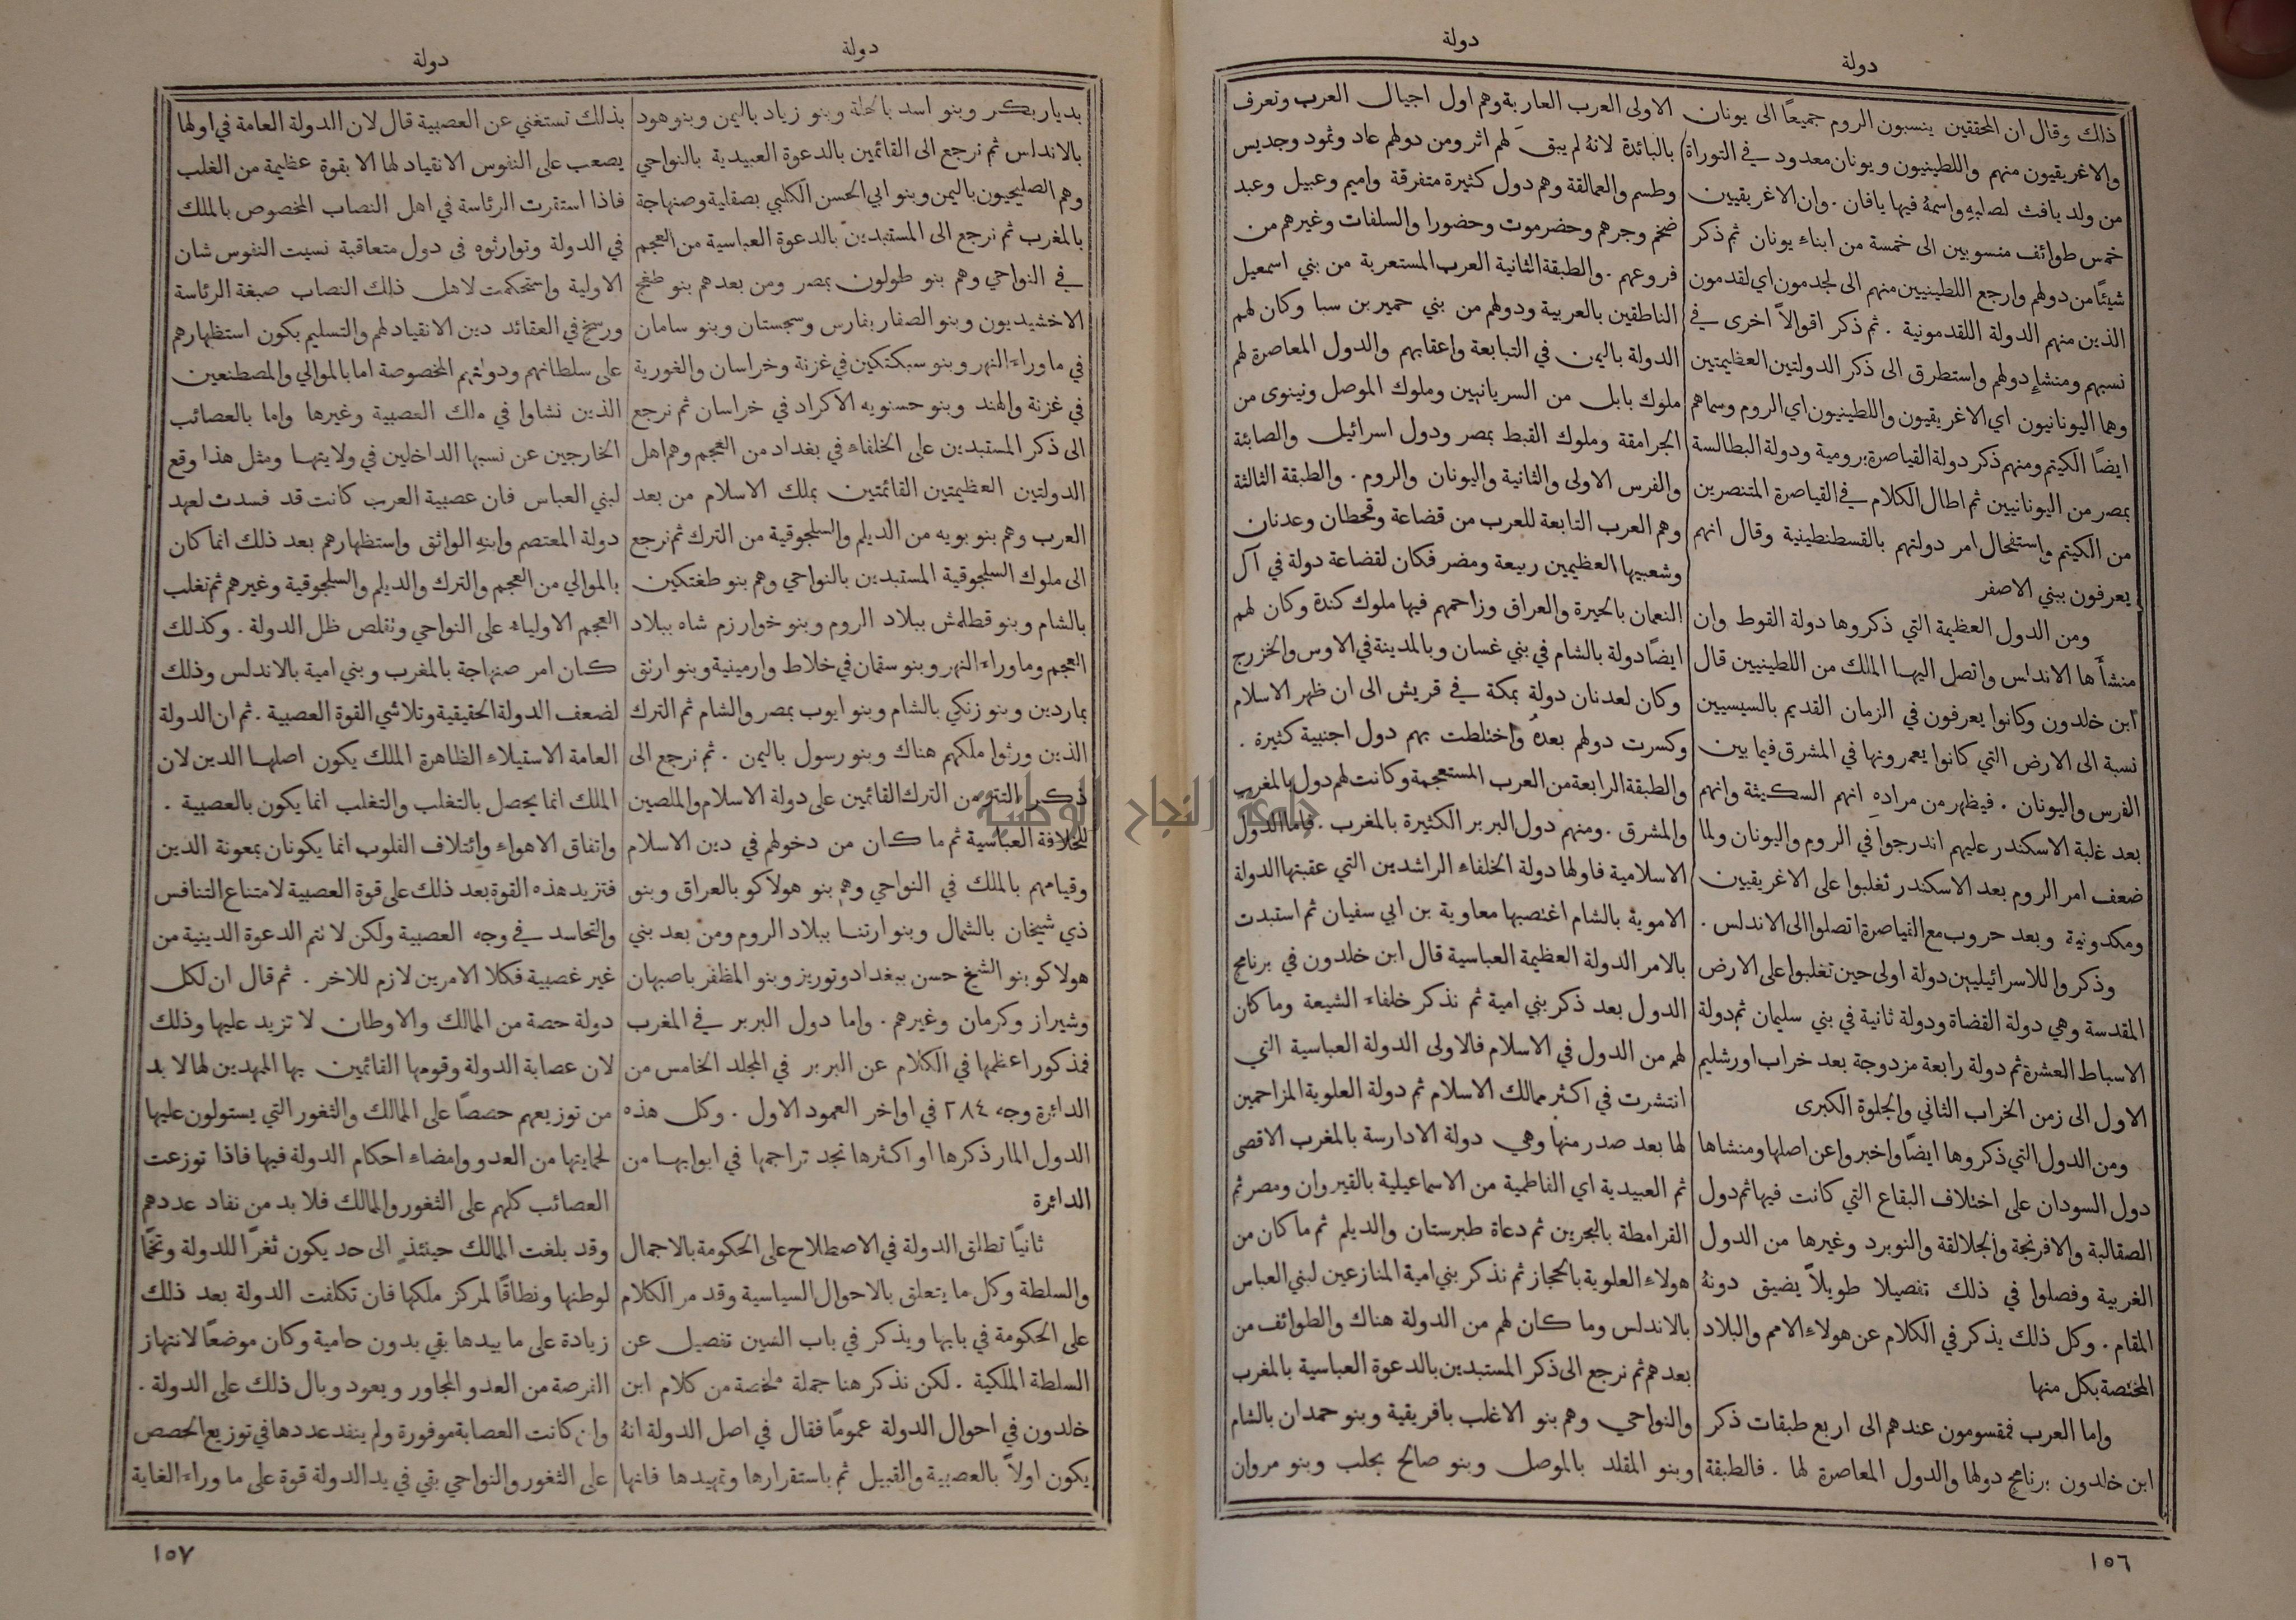 دولة
دولة
ذلك وقال ان المحققين ينسبون الروم جميعًا الى يونان
والاغريقيون منهم واللطينيون ويونان معدود في التوراة
من ولد يافث لصلبهِ واسمهُ فيها يافان . وان الاغريقيين
خمس طوائف منسوبين الى خمسة من ابناء يونان ثم ذكر
شيئًا من دولهم وارجع اللطينيين منهم الى لجدمون اي لقدمون
الذين منهم الدولة اللقدمونية . ثم ذكر اقوالاً اخرى في
نسبهم ومنشإِ دولهم واستطرق الى ذكر الدولتين العظيمتين
وهما اليونانيون اي الاغريقيون واللطينيون اي الروم وسماهم
ايضًا الكيتم ومنهم ذكر دولة القياصرة برومية ودولة البطالسة
بمصر من اليونانيين ثم اطال الكلام في القياصرة المتنصرين
من الكيتم واستفحال امر دولتهم بالقسطنطينية وقال انهم
يعرفون ببني الاصفر
ومن الدول العظيمة التي ذكروها دولة القوط وان
منشأها الاندلس واتصل اليها الملك من اللطينيين قال
ابن خلدون وكانوا يعرفون في الزمان القديم بالسيسيين
نسبة الى الارض التي كانوا يعمرونها في المشرق فيما بين
الفرس واليونان . فيظهر من مرادهِ انهم السكيثة وانهم
بعد غلبة الاسكندر عليهم اندرجوا في الروم واليونان ولما
ضعف امر الروم بعد الاسكندر تغلبوا على الاغريقيين
ومكدونية وبعد حروب مع القياصرة اتصلوا الى الاندلس .
وذكروا للاسرائيليين دولة اولى حين تغلبوا على الارض
المقدسة وهي دولة القضاة ودولة ثانية في بني سليمان ثم دولة
الاسباط العشرة ثم دولة رابعة مزدوجة بعد خراب اورشليم
الاول الى زمن الخراب الثاني والجلوة الكبرى
ومن الدول التي ذكروها ايضًا واخبروا عن اصلها ومنشاها
دول السودان على اختلاف البقاع التي كانت فيها ثم دول
الصقالبة والافرنجة والجلالقة والنوبرد وغيرها من الدول
الغربية وفصلوا في ذلك تفصيلا طويلاً يضيق دونهُ
المقام . وكل ذلك يذكر في الكلام عن هولاء الامم والبلاد
المختصة بكل منها
واما العرب فمقسومون عندهم الى اربع طبقات ذكر
ابن خلدون برنامج دولها والدول المعاصرة لها . فالطبقة
الاولى العرب العاربة وهم اول اجيال العرب وتعرف
بالبائدة لانهُ لم يبقَ لهم اثر ومن دولهم عاد وثمود وجديس
وطسم والعمالقة وهم دول كثيرة متفرقة واميم وعبيل وعبد
ضخم وجرهم وحضرموت وحضورا والسلفات وغيرهم من
فروعهم . والطبقة الثانية العرب المستعربة من بني اسمعيل
الناطقين بالعربية ودولهم من بني حمير بن سبا وكان لهم
الدولة باليمن في التبابعة واعقابهم والدول المعاصرة لهم
ملوك بابل من السريانيين وملوك الموصل ونينوى من
الجرامقة وملوك القبط بمصر ودول اسرائيل والصابئة
والفرس الاولى والثانية واليونان والروم . والطبقة الثالثة
وهم العرب التابعة للعرب من قضاعة وقحطان وعدنان
وشعبيها العظيمين ربيعة ومضر فكان لقضاعة دولة في آل
النعمان بالحيرة والعراق وزاحمهم فيها ملوك كندة وكان لهم
ايضًا دولة بالشام في بني غسان وبالمدينة في الاوس والخزرج
وكان لعدنان دولة بمكة في قريش الى ان ظهر الاسلام
وكسرت دولهم بعدهُ واختلطت بهم دول اجنبية كثيرة .
والطبقة الرابعة من العرب المستعجمة وكانت لهم دول بالمغرب
والمشرق . ومنهم دول البربر الكثيرة بالمغرب . فاما الدول
الاسلامية فاولها دولة الخلفاء الراشدين التي عقبتها الدولة
الاموية بالشام اغتصبها معاوية بن ابي سفيان ثم استبدت
بالامر الدولة العظيمة العباسية قال ابن خلدون في برنامج
الدول بعد ذكر بني امية ثم نذكر خلفاء الشيعة وما كان
لهم من الدول في الاسلام فالاولى الدولة العباسية التي
انتشرت في اكثر ممالك الاسلام ثم دولة العلوية المزاحمين
لها بعد صدر منها وهي دولة الادارسة بالمغرب الاقصى
ثم العبيدية اي الفاطمية من الاسماعيلية بالقيروان ومصر ثم
القرامطة بالبحرين ثم دعاة طبرستان والديلم ثم ما كان من
هولاء العلوية بالحجاز ثم نذكر بني امية المنازعين لبني العباس
بالاندلس وما كان لهم من الدولة هناك والطوائف من
بعدهم ثم نرجع الى ذكر المستبدين بالدعوة العباسية بالمغرب
والنواحي وهم بنو الاغلب بافريقية وبنو حمدان بالشام
وبنو المقلد بالموصل وبنو صالح بحلب وبنو مروان
١٥٦
دولة
دولة
بديار بكر وبنو اسد بالحلة وبنو زياد باليمن وبنو هود
بالاندلس ثم نرجع الى القائمين بالدعوة العبيدية بالنواحي
وهم الصليحيون باليمن وبنو ابي الحسن الكلبي بصقلية وصنهاجة
بالمغرب ثم نرجع الى المستبدين بالدعوة العباسية من العجم
في النواحي وهم بنو طولون بمصر ومن بعدهم بنو طغج
الاخشيديون وبنو الصفار بفارس وسجستان وبنو سامان
في ما وراء النهر وبنو سبكتكين في غزنة وخراسان والغورية
في غزنة والهند وبنو حسنويه الاكراد في خراسان ثم نرجع
الى ذكر المستبدين على الخلفاء في بغداد من العجم وهم اهل
الدولتين العظيمتين القائمتين بملك الاسلام من بعد
العرب وهم بنو بويه من الديلم والسلجوقية من الترك ثم نرجع
الى ملوك السلجوقية المستبدين بالنواحي وهم بنو طغتكين
بالشام وبنو قطلمش ببلاد الروم وبنو خوارزم شاه ببلاد
العجم وما وراء النهر وبنو سقمان في خلاط وارمينية وبنو ارتق
بماردين وبنو زنكي بالشام وبنو ايوب بمصر والشام ثم الترك
الذين ورثوا ملكهم هناك وبنو رسول باليمن . ثم نرجع الى
ذكر التتر من الترك القائمين على دولة الاسلام والملصين
للخلافة العباسية ثم ما كان من دخولهم في دين الاسلام
وقيامهم بالملك في النواحي وهم بنو هولاكو بالعراق وبنو
ذي شيخان بالشمال وبنو ارتنا ببلاد الروم ومن بعد بني
هولاكو بنو الشيخ حسن ببغداد وتوريز وبنو المظفر باصبهان
وشيراز وكرمان وغيرهم . واما دول البربر في المغرب
فمذكور اعظمها في الكلام عن البربر في المجلد الخامس من
الدائرة وجه ٢٨٤ في اواخر العمود الاول . وكل هذه
الدول المار ذكرها او اكثرها تجد تراجمها في ابوابها من
الدائرة
ثانيًا تطلق الدولة في الاصطلاح على الحكومة بالاجمال
والسلطة وكل ما يتعلق بالاحوال السياسية وقد مر الكلام
على الحكومة في بابها ويذكر في باب السين تفصيل عن
السلطة الملكية . لكن نذكر هنا جملة ملخصة من كلام ابن
خلدون في احوال الدولة عمومًا فقال في اصل الدولة انهُ
يكون اولاً بالعصبية والقبيل ثم باستقرارها وتمهيدها فانها
بذلك تستغني عن العصبية قال لان الدولة العامة في اولها
يصعب على النفوس الانقياد لها الا بقوة عظيمة من الغلب
فاذا استقرت الرئاسة في اهل النصاب المخصوص بالملك
في الدولة وتوارثوه في دول متعاقبة نسيت النفوس شان
الاولية واستحكمت لاهل ذلك النصاب صبغة الرئاسة
ورسخ في العقائد دين الانقياد لهم والتسليم يكون استظهارهم
على سلطانهم ودولتهم المخصوصة اما بالموالي والمصطنعين
الذين نشاوا في ملك العصبية وغيرها واما بالعصائب
الخارجين عن نسبها الداخلين في ولايتها ومثل هذا وقع
لبني العباس فان عصبية العرب كانت قد فسدت لعهد
دولة المعتصم وابنهِ الواثق واستظهارهم بعد ذلك انما كان
بالموالي من العجم والترك والديلم والسلجوقية وغيرهم ثم تغلب
العجم الاولياء على النواحي وتقلص ظل الدولة . وكذلك
كان امر صنهاجة بالمغرب وبني امية بالاندلس وذلك
لضعف الدولة الحقيقية وتلاشي القوة العصبية . ثم ان الدولة
العامة الاستيلاء الظاهرة الملك يكون اصلها الدين لان
الملك انما يحصل بالتغلب والتغلب انما يكون بالعصبية .
واتفاق الاهواء وائتلاف القلوب انما يكونان بمعونة الدين
فتزيد هذه القوة بعد ذلك على قوة العصبية لامتناع التنافس
والتحاسد في وجه العصبية ولكن لا تتم الدعوة الدينية من
غير غصبية فكلا الامرين لازم للاخر . ثم قال ان لكل
دولة حصة من الممالك والاوطان لا تزيد عليها وذلك
لان عصابة الدولة وقومها القائمين بها الممهدين لها لا بد
من توزيعهم حصصًا على الممالك والثغور التي يستولون عليها
لحمايتها من العدو وامضاء احكام الدولة فيها فاذا توزعت
العصائب كلهم على الثغور والممالك فلا بد من نفاد عددهم
وقد بلغت الممالك حينئذٍ الى حد يكون ثغرًا للدولة وتخمًا
لوطنها ونطاقًا لمركز ملكها فان تكلفت الدولة بعد ذلك
زيادة على ما بيدها بقي بدون حامية وكان موضعًا لانتهاز
الفرصة من العدو المجاور ويعود وبال ذلك على الدولة .
وان كانت العصابة موفورة ولم ينفد عددها في توزيع الحصص
على الثغور والنواحي بقي في يد الدولة قوة على ما وراء الغاية
١٥٧
جامعة النجاح الوطنية